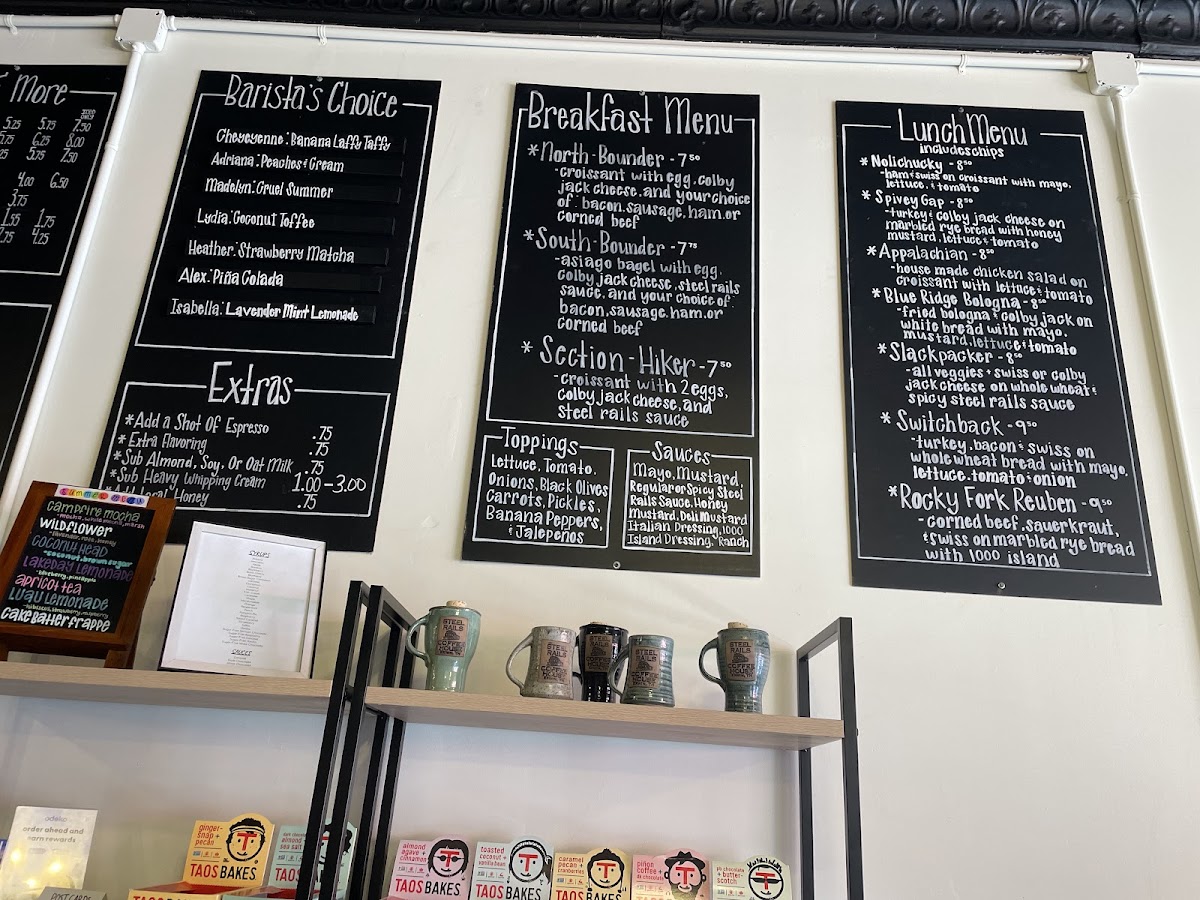 & More
5.25 5.75 7.50
5.75 6.25 8.00
5.75 7.50
4.00 6.50
3.75
1.55 1.75
4.25
Barista's Choice
Cheyeyenne: Banana Laffy Taffy
Adriana: Peaches & Cream
Madelyn: Cruel Summer
Lydia: Coconut Toffee
Heather: Strawberry Matcha
Alex: Piña Colada
Isabella: Lavender Mint Lemonade
Extras
*Add a Shot Of Espresso .75
*Extra Flavoring .75
*Sub Almond, Soy, Or Oat Milk .75
*Sub Heavy Whipping Cream 1.00-3.00
Local Honey .75
Breakfast Menu
*North-Bounder - 7.50
-croissant with egg, colby
jack cheese, and your choice
of: bacon, sausage, ham, or
corned beef
*South-Bounder - 7.75
-asiago bagel with egg,
colby jack cheese, steel rails
sauce, and your choice of:
bacon, sausage, ham, or
corned beef
*Section-Hiker - 7.50
-croissant with 2 eggs,
colby jack cheese, and
steel rails sauce
Toppings
Lettuce, Tomato,
Onions, Black Olives
Carrots, Pickles,
Banana Peppers,
& Jalepeños
Sauces
Mayo, Mustard,
Regular or Spicy Steel
Rails Sauce, Honey
Mustard, Deli Mustard
Italian Dressing, 1000
Island Dressing, Ranch
Lunch Menu
includes chips
*Nolichucky - 8.50
-ham & swiss on croissant with mayo,
lettuce, & tomato
*Spivey Gap - 8.50
-turkey & colby jack cheese on
marbled rye bread with honey
mustard, lettuce & tomato
*Appalachian - 8.50
-house made chicken salad on
croissant with lettuce & tomato
*Blue Ridge Bologna - 8.50
-fried bologna & colby jack on
white bread with mayo,
mustard, lettuce & tomato
*Slackpacker - 8.50
-all veggies + swiss or colby
jack cheese on whole wheat &
spicy steel rails sauce
*Switchback - 9.50
-turkey, bacon & swiss on
whole wheat bread with mayo,
lettuce, tomato & onion
*Rocky Fork Reuben - 9.50
-corned beef, sauerkraut,
& swiss on marbled rye bread
with 1000 island
campfire mocha
WILDFLOWER
COCONUT HEAD
-coconut, brown sugar
LAKEDAY LEMONADE
-blueberry, pineapple
APRICOT TEA
LUAU LEMONADE
CAKE BATTER FRAPPE
SYRUPS
SAUCES
STEEL RAILS COFFEE HOUSE
STEEL RAILS COFFEE HOUSE
STEEL RAILS COFFEE HOUSE
STEEL RAILS COFFEE HOUSE
STEEL RAILS COFFEE HOUSE
odeko
order ahead and
earn rewards
POSTCARDS
ginger-
snap +
pecan
TAOS BAKES
almond
sea salt
almond
agave +
cinnamon
TAOS BAKES
toasted
coconut +
vanilla bean
TAOS BAKES
caramel
pecan +
cranberries
TAOS BAKES
piñon
coffee +
dk chocolate
TAOS BAKES
pb chocolate
+ butter-
scotch
TAOS BAKES